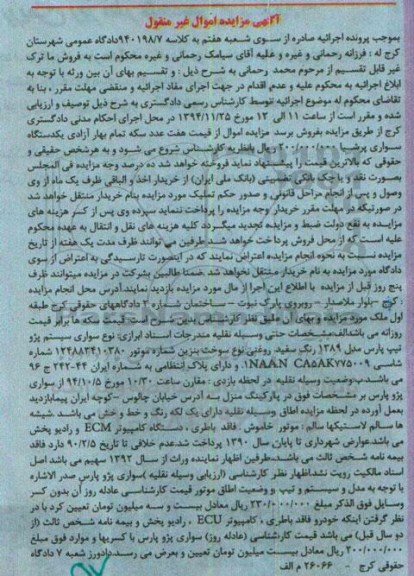 آگهی مزایده اموال غیر منقول
بموجب پرونده اجرائیه صادره از سوی شعبه هفتم به کلاسه ۹۴۰۱۹۸/۷دادگاه عمومی شهرستان
کرج له : فرزانه رحمانی و غیره و علیه آقای سیامک رحمانی و غیره محکوم است به فروش ما ترک
غیر قابل تقسیم از مرحوم محمد رحمانی به شرح ذیل : و تقسیم بهای آن بین ورثه با توجه به
ابلاغ اجرائیه به محکوم علیه و عدم اقدام در جهت اجرای مفاد اجرائیه و منقضی مهلت مقرر ، بنا به
تقاضای محکوم له موضوع اجرائیه توسط کارشناس رسمی دادگستری به شرح ذیل توصیف و ارزیابی
شده و مقرر است از ساعت ۱۱ الی ۱۲ مورخ ۱۳۹۴/۱۱/۲۵ در محل اجرای احکام مدنی دادگستری
کرج از طریق مزایده بفروش برسد مزایده اموال از قیمت هفت عدد سکه تمام بهار آزادی یکدستگاه
سواری پرشیا ۲۰۰/۰۰۰/۰۰۰ ریال بانظریه کارشناس شروع می شود و به هرشخص حقیقی و
حقوقی که بالاترین قیمت را پیشنهاد نماید فروخته خواهد شد ده درصد وجه مزایده فی المجلس
بصورت نقد و یا چک بانکی تضمینی (بانک ملی ایران) از خریدار اخذ و الباقی ظرف یک ماه از وی
وصول و پس از انجام مراحل قانونی و صدور حکم تملیک مورد مزایده بنام خریدار منتقل خواهد شد
در صورتیکه در مهلت مقرر خریدار وجه مزایده را پرداخت ننماید سپرده وی پس از کسر هزینه های
مزایده به نفع دولت ضبط و مزایده تجدید میگردد کلیه هزینه های نقل و انتقال به عهده محکوم
علیه است که از محل فروش پرداخت خواهد شد.طرفین می توانند ظرف مدت یک هفته از تاریخ
مزایده نسبت به نحوه انجام مزایده اعتراض نمایند که در اینصورت تارسیدگی به اعتراض از سوی
دادگاه مورد مزایده به نام خریدار منتقل نخواهد شد.ضمنا طالبین بشرکت در مزایده میتوانند ظرف
پنج روز قبل از مزایده با اطلاع این اجرا از مال مورد مزایده بازدید نمایند.آدرس محل انجام مزایده
: کرج -بلوار ملاصدار – روبروی پارک نبوت – ساختمان شماره ۲ دادگاههای حقوقی کرج طبقه
اول ملک مورد مزایده و بهای آن طبق نظر کارشناس بدین شرح است: قیمت سکه ها برابر قیمت
روزانه می باشدالف:مشخصات حتنی وسیله نقلیه مندرجات اسناد ابرازی: نوع سواری سیستم پژو
تیپ پارس مدل ۱۳۸۹ رنگ سفید روغنی نوع سوخت بنزین شماره موتور ۱۲۴۸۸۳۴۱۰۳۸۰ شماره
شاسی NAAN CA۵AK۷۷۵۰۰۹ ۱. و دارای پلاک انتظامی به شماره ایران ۴۴-۲۴۲ ج ۹۶
می باشد.ب وضعیت وسیله نقلیه در لحظه بازدی : مقارن ساعت ۱۰/۳۰ مورخ ۹۴/۱۰/۵ از سواری
پژو پارس بر مشخصات فوق در پارکینگ منزل به آدرس خیابان چالوس -کوچه ایران پیمابازدید
بعمل آورده در لحظه مزایده اطاق وسیله نقلیه دارای یک لکه رنگ و خط و خش می باشد .شیشه
ها سالم لاستیکها سالم : موتور خاموش . فاقد باطری ، دستگاه کامپیوتر ECM و رادیو پخش
می باشد.عوارض شهرداری تا پایان سال ۱۳۹۰ پرداخت شد.عدم خلافی تا تاریخ ۹۰/۲/۵ دارد فاقد
بیمه نامه شخص ثالث می باشد.طرفین اظهار نماینده وراث از سال ۱۳۹۲ سهیم می باشد اصل
اسناد مالکیت رویت نشد.اظهار نظر کارشناسی (ارزیابی وسیله نقلیه )سواری پژو پارس صدر الاشاره
با توجه به مدل و سیستم و تیپ و وضعیت اطاق موتور قیمت کارشناسی عادله روز آن بدون کسر
وسایل فوق الذکر مبلغ ۲۳۰/۰۰۰/۰۰۰ ریال معادل بیست و سه میلیون تومان تعیین کرد با در
نظر گرفتن اینکه خودرو فاقد باطری ، کامپیوتر ECU ، رادیو پخش و بیمه نامه شخص ثالث (از
دو سال قبل) می باشد قیمت کارشناسی (عادله روز) سواری پژو پارس با کسریها و موارد فوق مبلغ
۲۰۰/۰۰۰/۰۰۰ ریال معادل بیست میلیون تومان تعیین و بعرض می رسد.دادورز شعبه ۷ دادگاه
حقوقی کرج - ۲۶۰۶۶ م الف